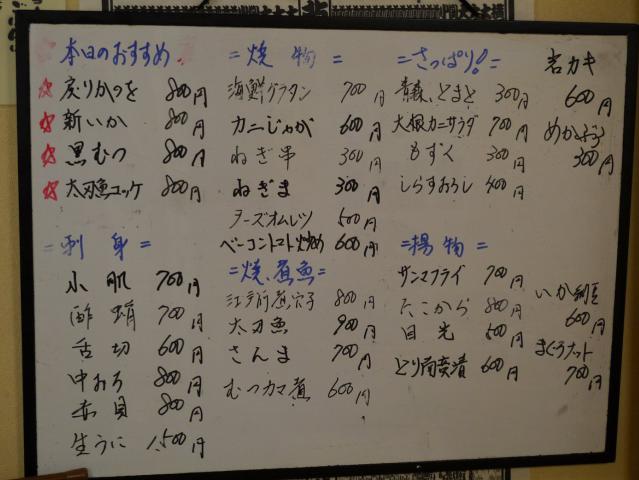 本日のおすすめ
戻りかつを 800円
新いか 800円
黒むつ 800円
太刀魚ユッケ 800円
=刺身=
小肌 700円
酢蛸 700円
舌切 600円
中おち 800円
赤貝 800円
生うに 1,500円
=焼物=
海鮮グラタン 700円
カニじゃが 600円
ねぎ串 300円
ねぎま 300円
チーズオムレツ 500円
ベーコントマト炒め 600円
=焼、煮魚=
江戸前煮穴子 800円
太刀魚 900円
さんま 700円
むつカマ煮 600円
=さっぱり!=
青森とまと 300円
大根カニサラダ 700円
もずく 300円
しらすおろし 400円
=揚物=
サンマフライ 700円
たこから 800円
目光 500円
とり南蛮漬 600円
岩カキ
600円
めかぶ
300円
いか納豆
600円
まぐろナット
700円